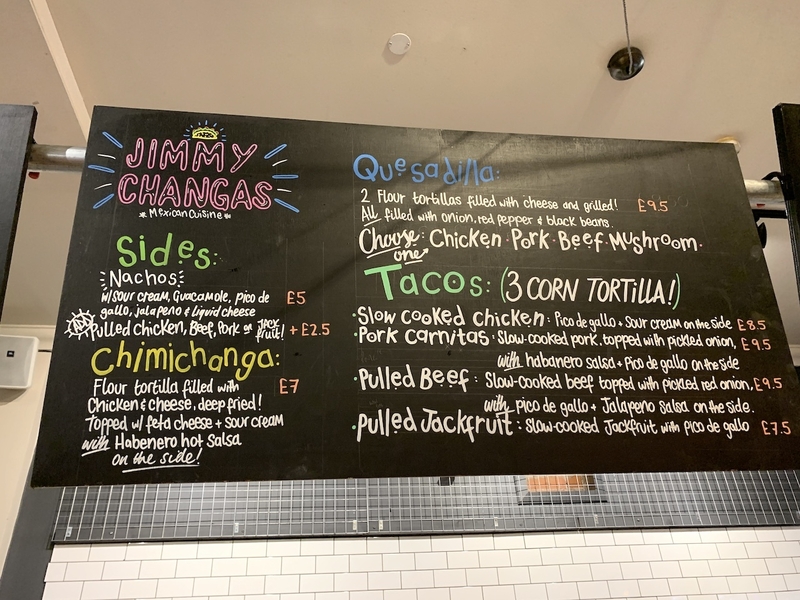 JIMMY
CHANGAS
Mexican Cuisine
Sides:
Nachos
w/sour cream, Guacamole, pico de £5
gallo, jalapeño & liquid cheese
Pulled chicken, Beef, Pork or Jack fruit! + £2.5
Chimichanga:
Flour tortilla filled with £7
Chicken & cheese, deep fried!
Topped w/ feta cheese + sour cream
with Habenero hot salsa
on the side!
Quesadilla:
2 Flour tortillas filled with cheese and grilled! £9.5
All filled with onion, red pepper & black beans.
Choose one: Chicken · Pork · Beef · Mushroom.
Tacos: (3 CORN TORTILLA!)
·Slow cooked chicken: Pico de gallo + Sour cream on the side £8.5
·Pork carnitas: Slow-cooked pork, topped with pickled onion, £9.5
with habanero salsa + Pico de gallo on the side
·Pulled Beef: Slow-cooked beef topped with pickled red onion, £9.5
with pico de gallo + Jalapeno Salsa on the side.
·Pulled Jackfruit: Slow-cooked Jackfruit with Pico de gallo £7.5